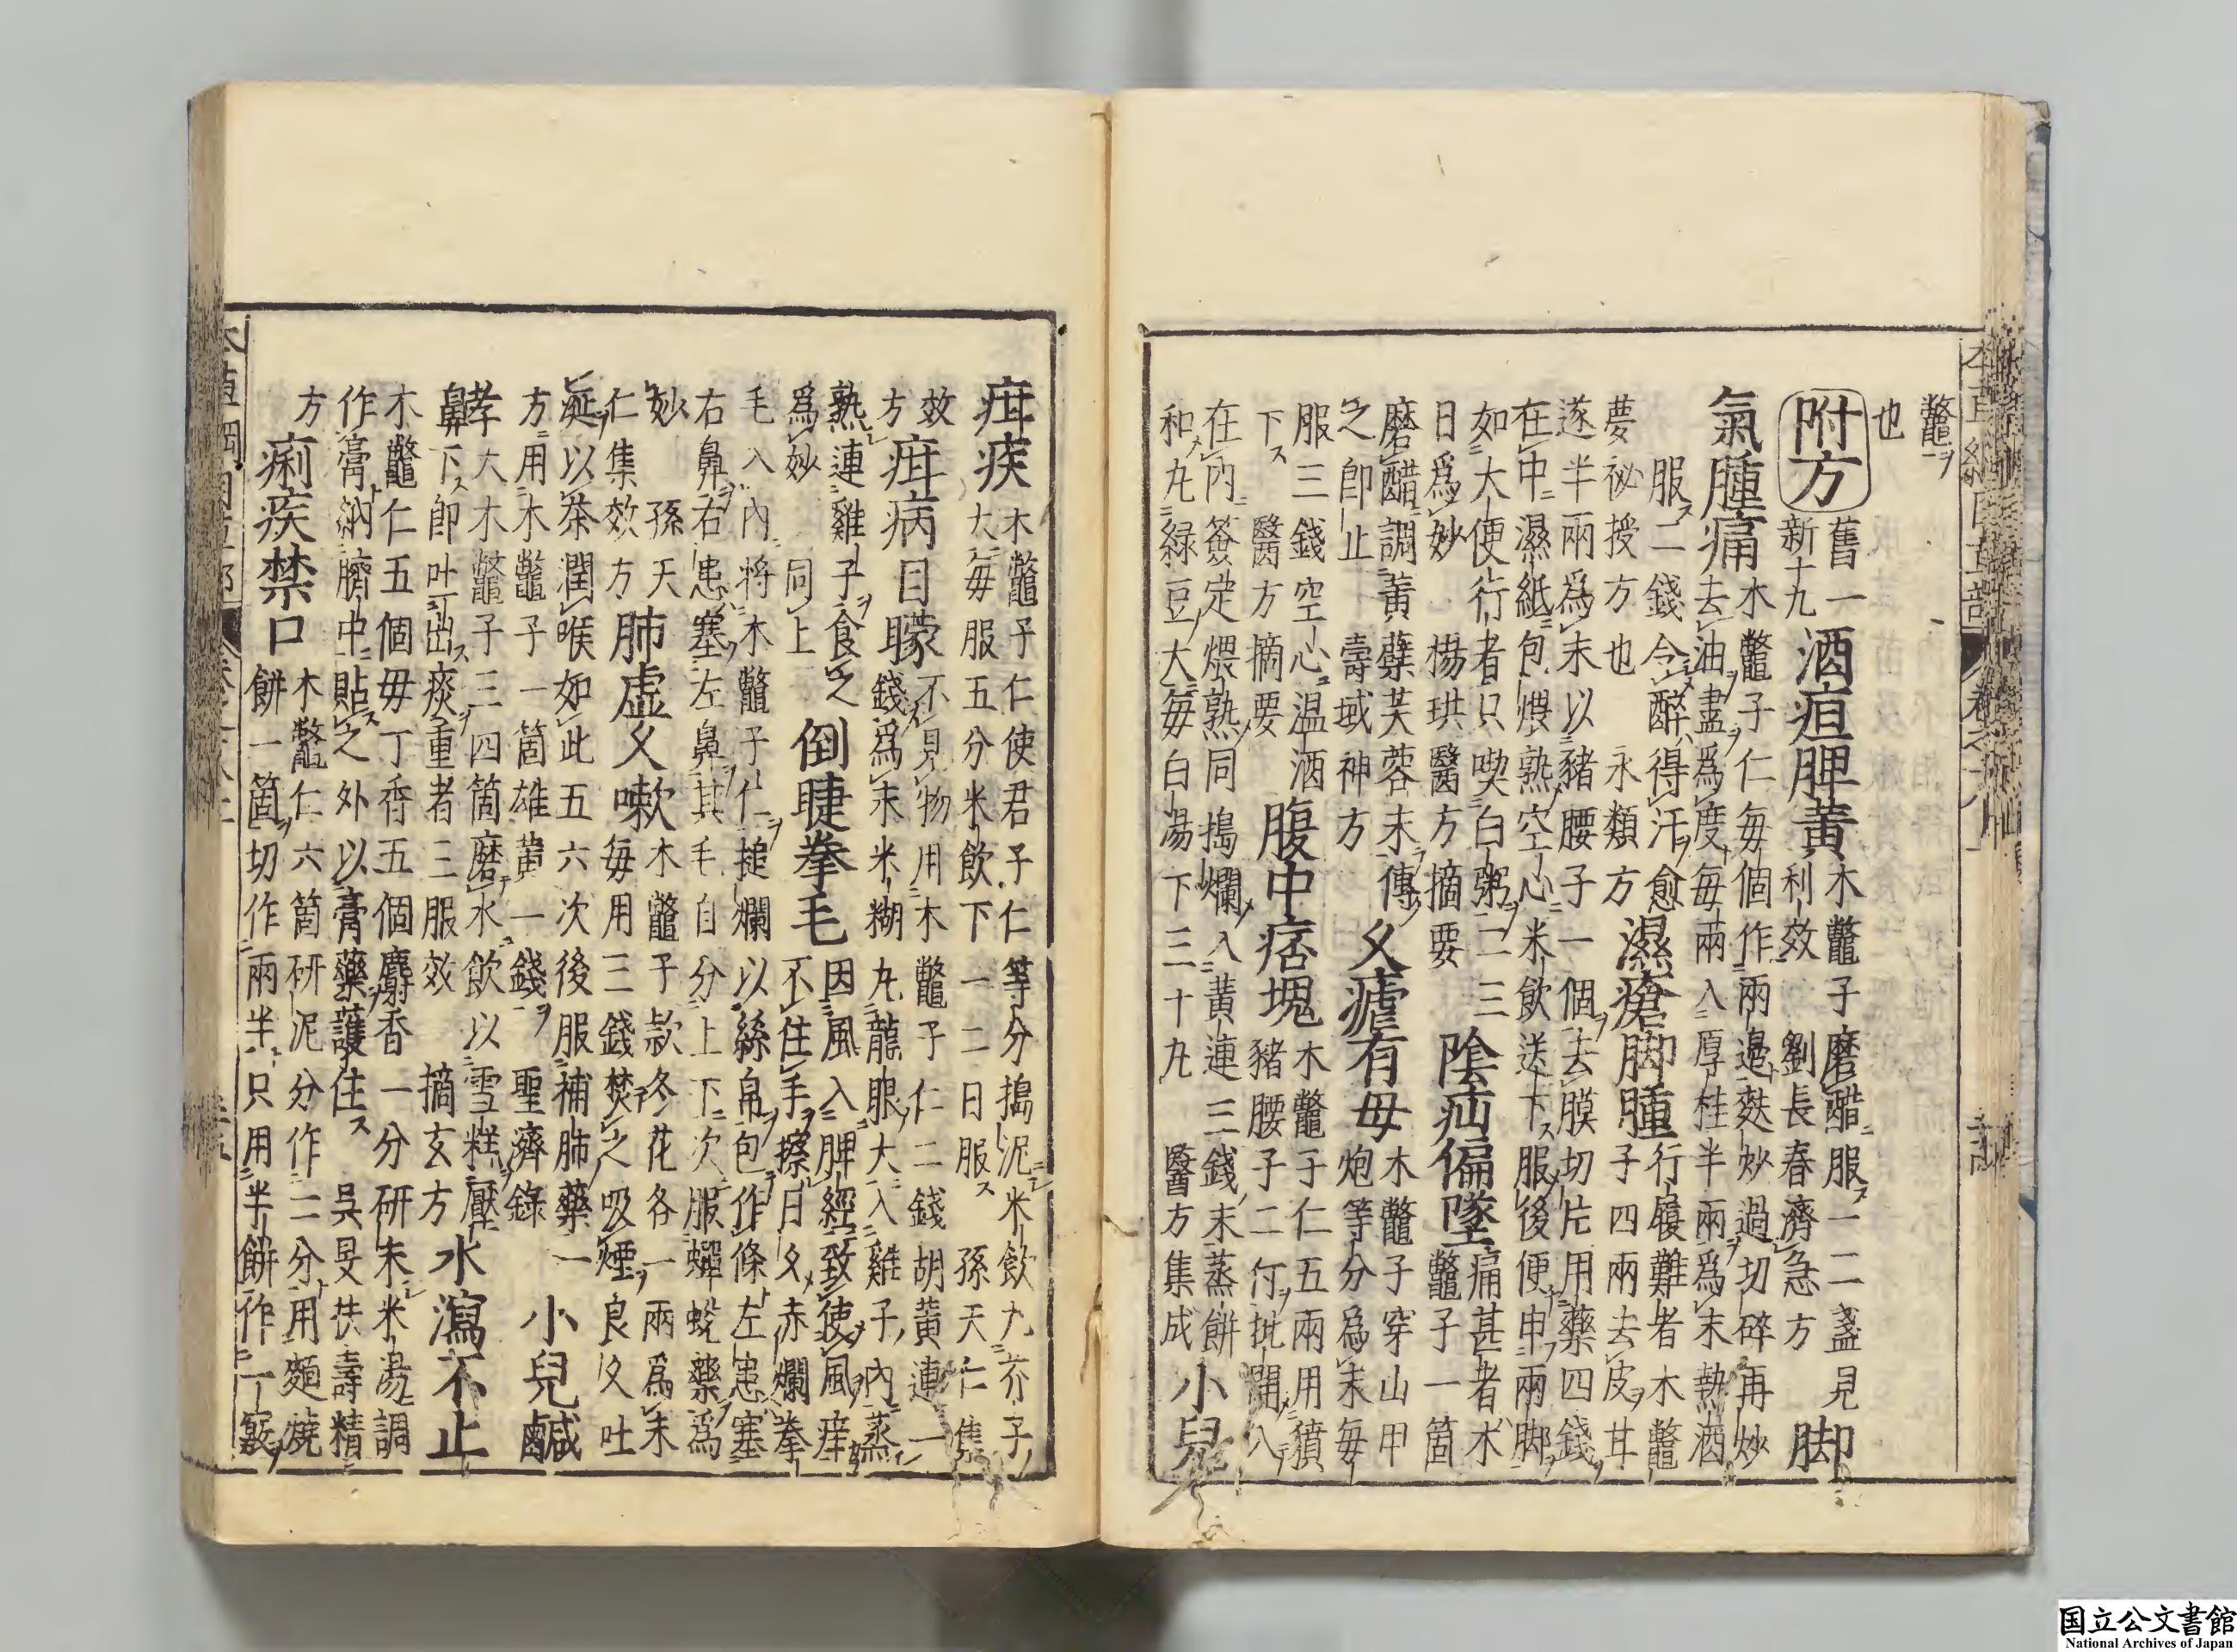 鼈
也
附方 舊一
新十九 酒疸脾黃 木鼈子磨醋服一二盞見
利效 劉長春濟急方 脚
氣腫痛 木鼈子仁每個作兩邉麩炒過切碎再炒
去油盡爲度每兩入厚桂半兩爲末熱酒
服二錢令醉得汗愈
夢祕授方也 永類方 濕瘡脚腫 行履難者木鼈
子四兩去皮甘
遂半兩爲末以豬腰子一個去膜切片用藥四錢
在中濕紙包煨熟空心米飲送下服後便申兩脚
如大便行者只喫白粥二三
日爲妙 楊珙醫方摘要 陰疝偏墜 痛甚者木
鼈子一箇
磨醋調黃蘗芙蓉末傅
之即止 壽域神方 久瘧有母 木鼈子穿山甲
炮等分爲末每
服三錢空心温酒
下 醫方摘要 腹中痞塊 木鼈子仁五兩用獖
豬腰子二付批開入
在内簽定煨熟同搗爛入黃連三錢末蒸餅
和丸綠豆大每白湯下三十丸 醫方集成 小兒
疳疾 木鼈子仁使君子仁等分搗泥米飲丸芥子
大每服五分米飲下一二日服 孫天仁集
效
方 疳病目矇 不見物用木鼈子仁二錢胡黃連一
錢爲末米糊丸龍眼大入雞子内蒸
熟連雞子食之
爲妙 同上 倒睫拳毛 因風入脾經致使風痒
不住手擦日久赤爛拳
毛入内將木鼈子仁搥爛以絲帛包作條左患塞
右鼻右患塞左鼻其毛自分上下次服蟬蛻藥爲
妙 孫天
仁集效方 肺虚久嗽 木鼈子款冬花各一兩爲末
每用三錢焚之吸煙良久吐
涎以茶潤喉如此五六次後服補肺藥一
方用木鼈子一箇雄黃一錢 聖濟錄 小兒鹹
孝 大木鼈子三四箇磨水飲以雪糕壓
鼻下即吐出痰重者三服效 摘玄方 水瀉不止
木鼈仁五個毋丁香五個麝香一分研末米湯調
作膏納臍中貼之外以膏藥護住 吳旻扶壽精
方 痢疾禁口 木鼈仁六箇研泥分作二分用麵燒
餅一箇切作兩半只用半餅作一竅
国立公文書館
National Archives of Japan